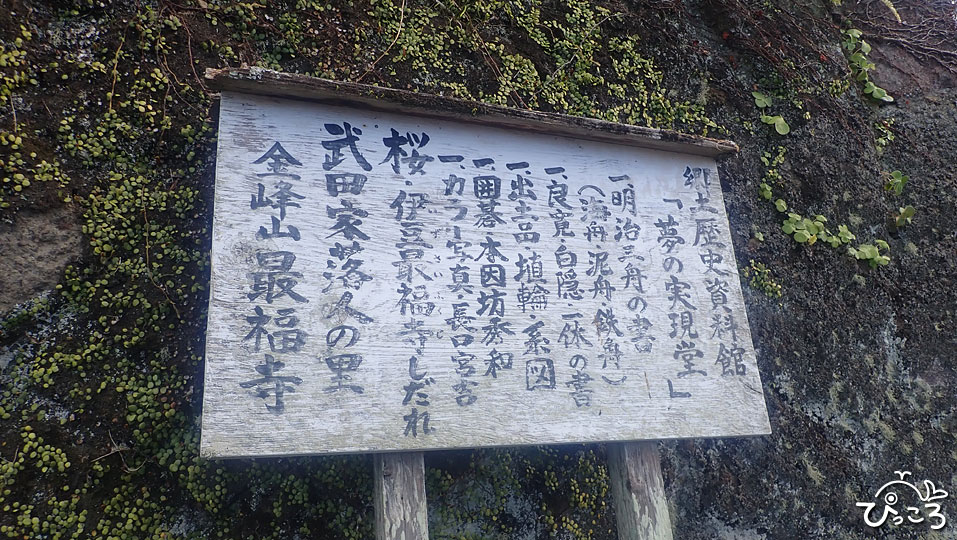 郷土歴史資料館
「夢の実現堂」
一、明治三舟の書
(海舟泥舟鉄舟)
一、良寛・白隠一休の書
一、出土品埴輪系図
一、囲碁本因坊秀和
一、カラー写真・長口宮吉
桜・伊豆最福寺しだれ
さいふくじ
武田家落人の里
金峰山最福寺
ぴっころ